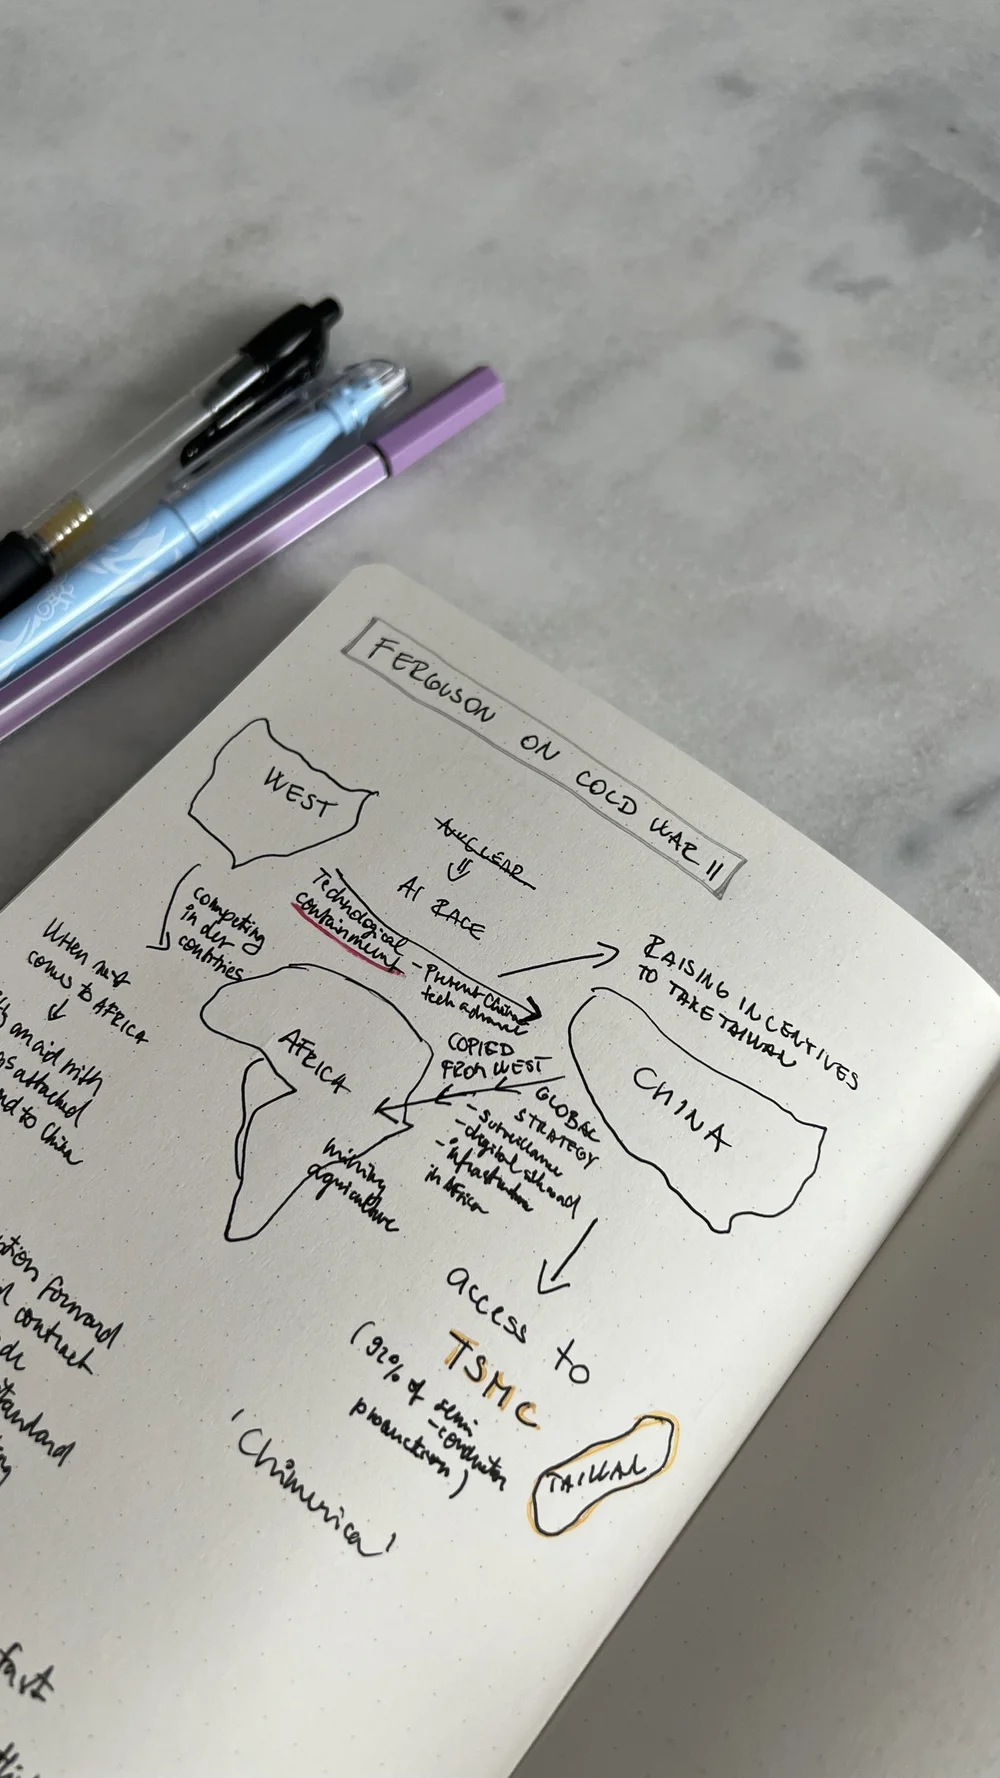 FERGUSON ON COLD WAR II
WEST
NUCLEAR
AI RACE
Technological
containment
- Prevent China
tech advance
RAISING INCENTIVES
TO TAKE TAIWAN
competing
in der
countries
When
comes to AFRICA
an aid with
attached
to China
AFRICA
mining
agriculture
COPIED
FROM WEST
CHINA
GLOBAL
STRATEGY
- surveillance
- digital silkroad
- infrastructure
in Africa
access to
TSMC
(92% of semi
-conductor
production)
TAIWAN
'Chimerica'
forward
contract
standard